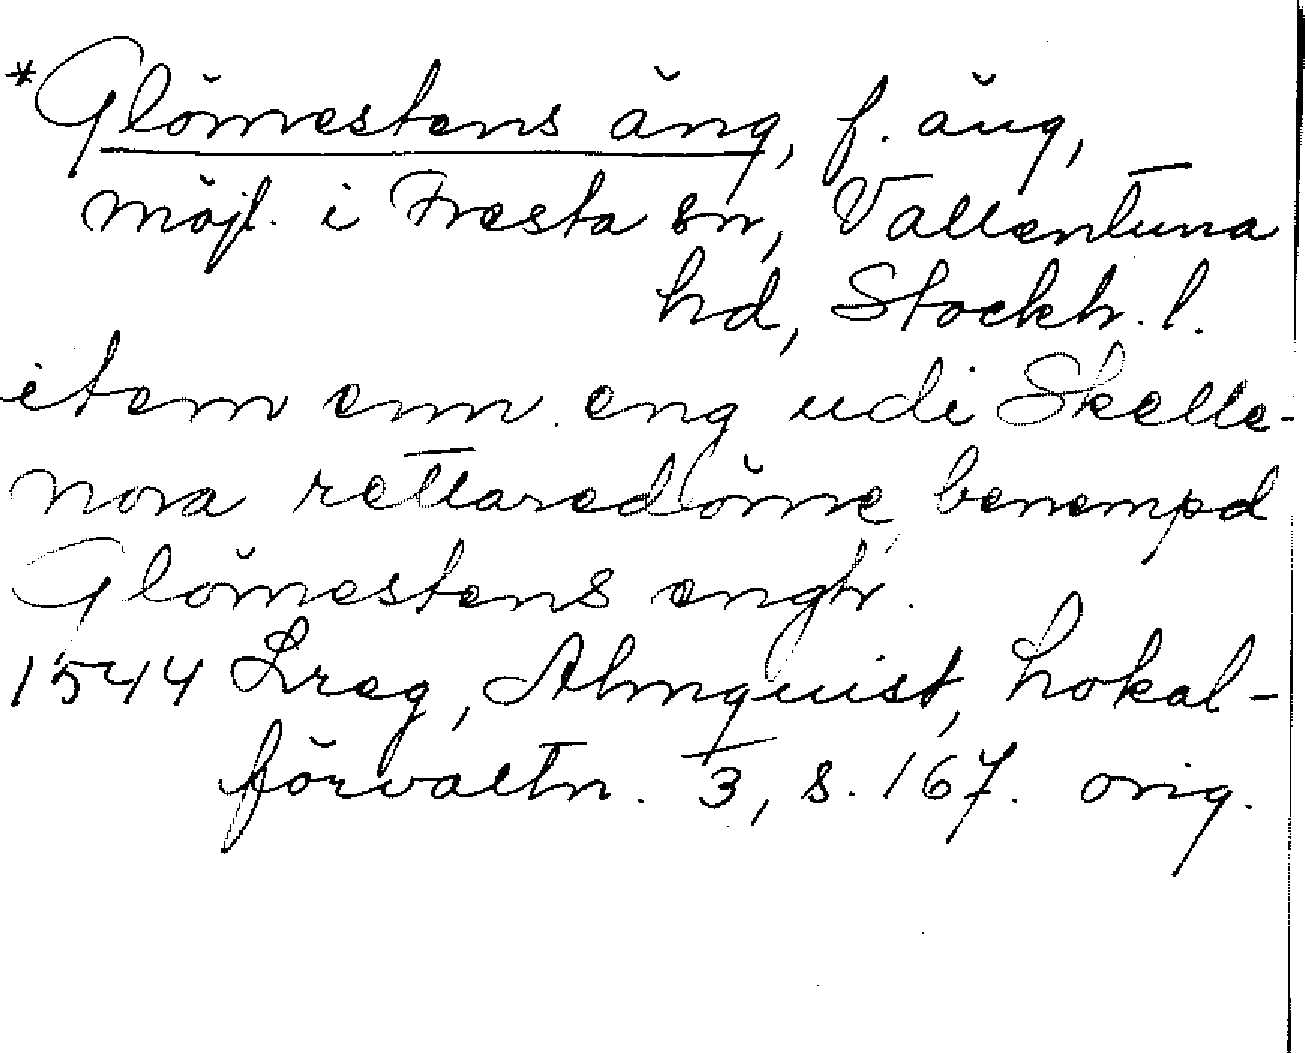 *Glömestens äng, f. äng,
möjl. i Fresta sn, Vallentuna
hd, Stockh. l.
item enn eng udi Skelle-
nora rettaredöme benempd
Glömestens engh.
1544 Lreg, Almquist, Lokal-
förvaltn. 3, s. 167. orig.